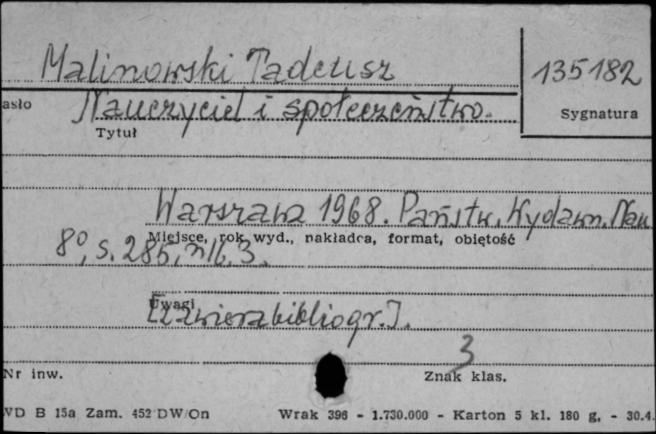 Malinowski Tadeusz
135182
asło
Nauczyciel i społeczeństwo.
Tytuł
Sygnatura
Warszawa 1968. Państw. Wydawn. Nauk
Miejsce, rok wyd., nakładca, format, objętość
8°, s. 285, 3.
Uwagi
[Zawiera bibliogr.].
3
Nr inw.
Znak klas.
WD B 15a Zam. 452 DW/On
Wrak 396 - 1.730.000 - Karton 5 kl. 180 g. - 30.4.